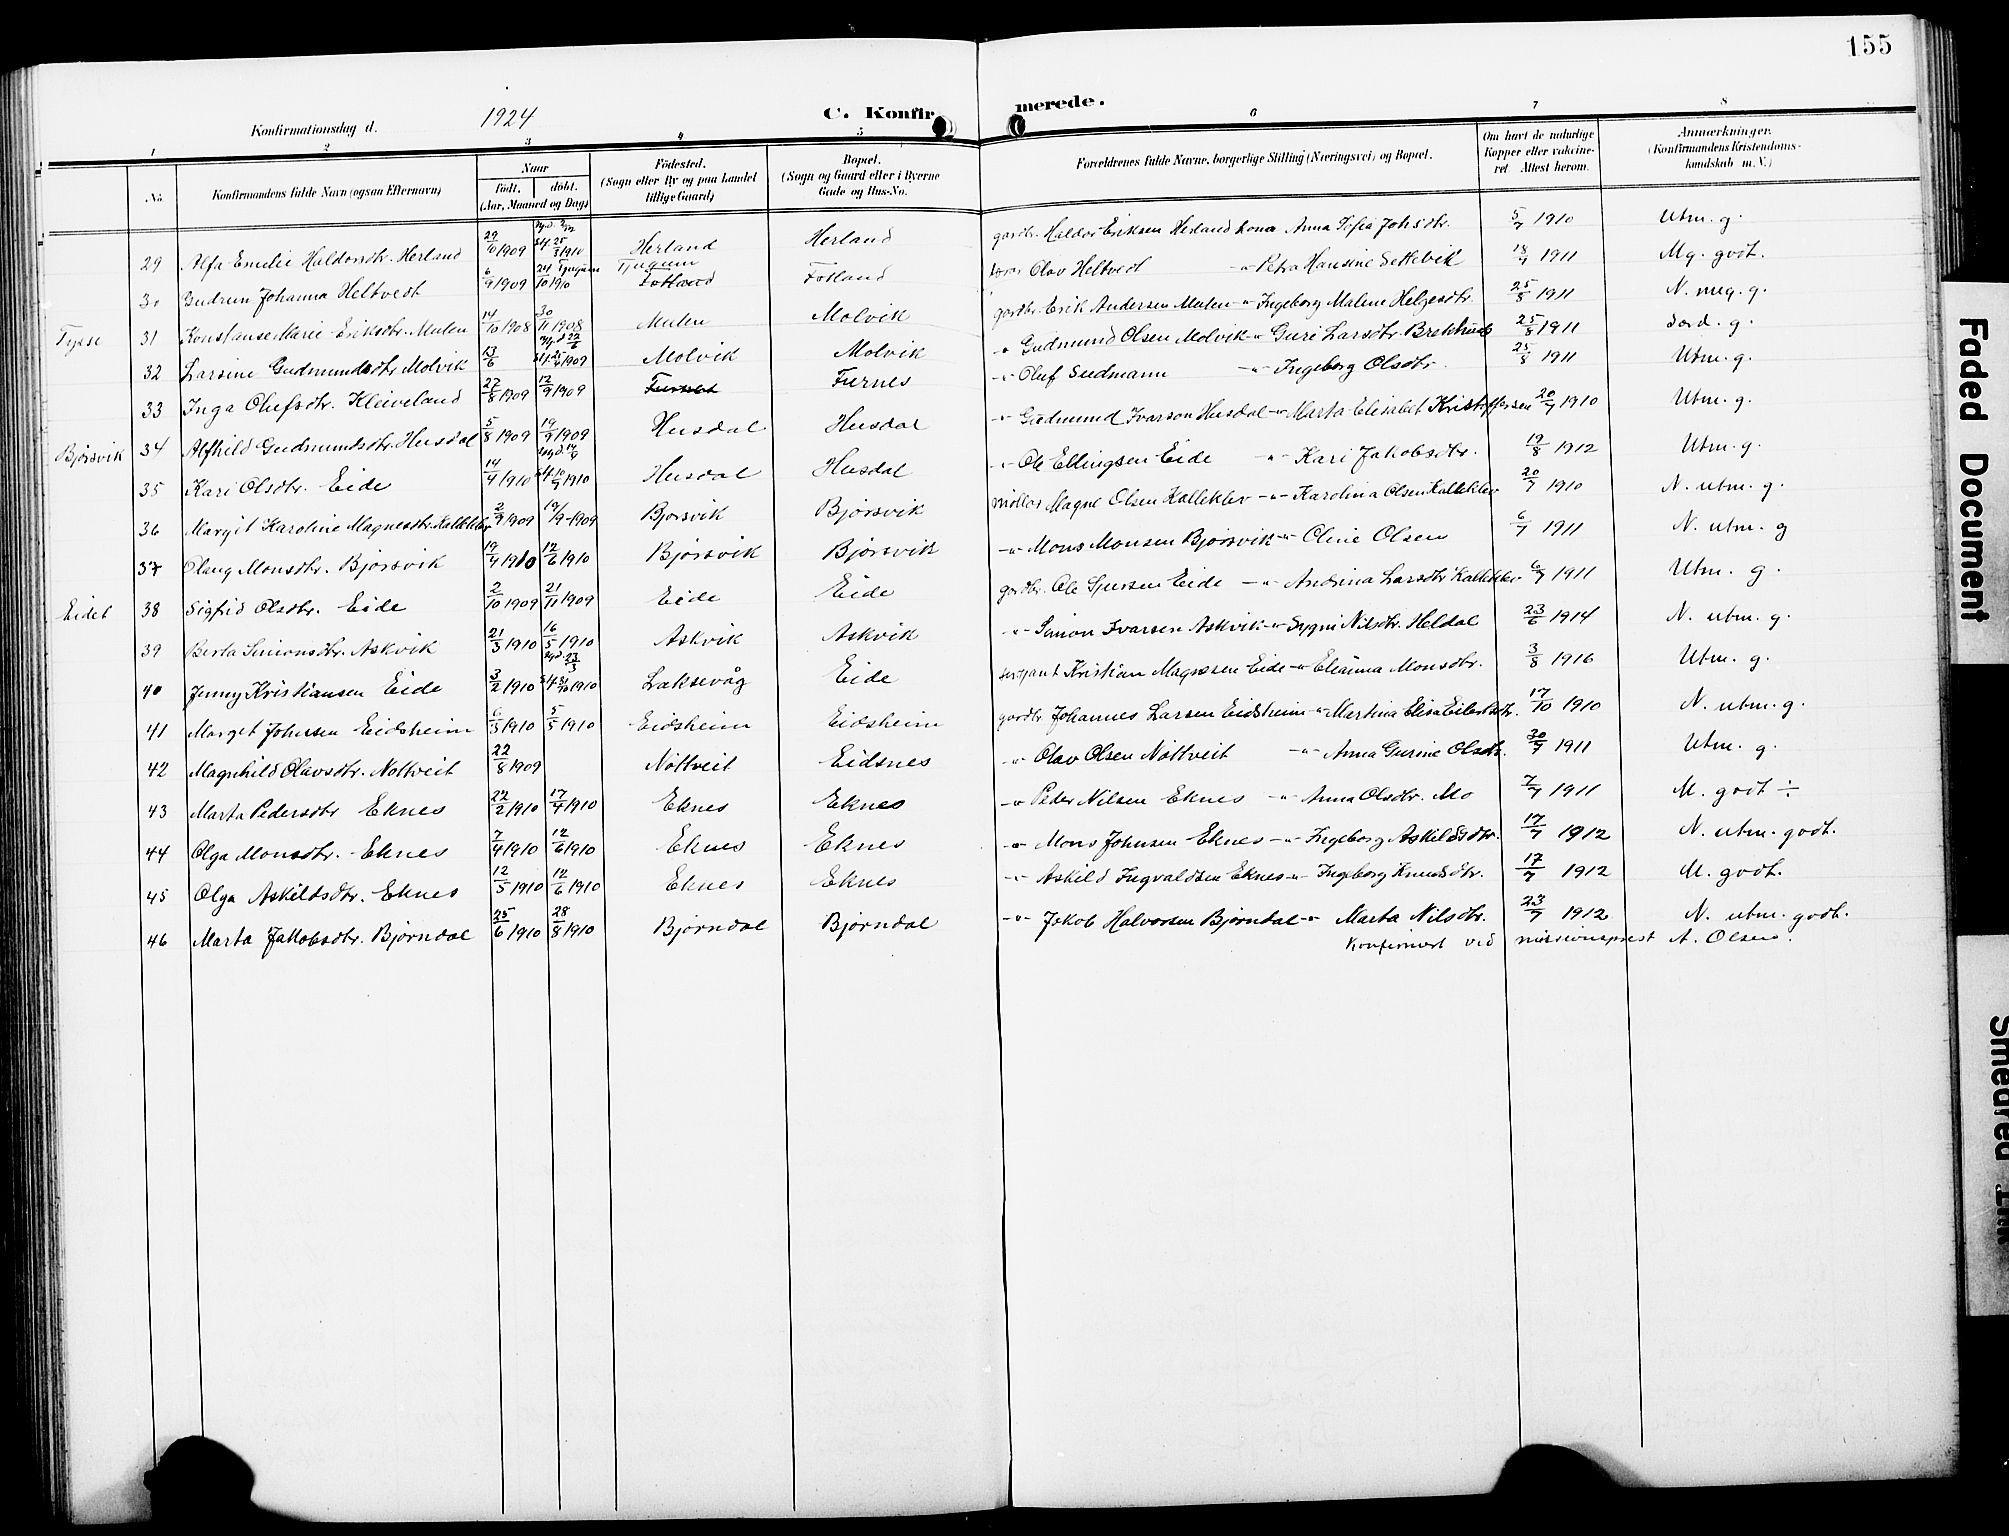 155
Konfirmationsdag d. 1924 C. Konfirmerede.
1 2 3 4 5 6 7 8
No. Konfirmandens fulde Navn (ogsaa Efternavn) Naar født, døbt. (Aar, Maaned og Dag) Fødested. (Sogn eller By og paa Landet tillige Gaard) Bopæl. (Sogn og Gaard eller i Byerne Gade og Hus-No. Forældrenes fulde Navne, borgerlige Stilling (Næringsvei) og Bopæl. Om havt de naturlige Kopper eller vaccineret. Attest herom. Anmærkninger. (Konfirmandens Kristendomskundskab m. V.)
29 Alfa Emelie Haldorsdtr. Herland 29/10 1909 25/3 1910 Herland Herland gardbr. Haldor Eriksen Herland kona Anna Sofia Johsdtr. 5/7 1910 Utm. g.
30 Gudrun Johanna Heltvedt 6/9 1909 24/10 1910 Tjugum Tjugum Fotland Fotland Olav Heltvedt -"- Petra Hansine Settevik 18/7 1911 Mg. godt.
Tysse 31 Konstanse Marie Eriksdtr. Mulen 14/10 1908 30/11 1908 Mulen Molvik gardbr. Erik Andersen Mulen -"- Ingeborg Malene Helgesdtr. 25/8 1911 N. meg. g.
32 Larsine Gudmundsdtr. Molvik 13/6 1909 Molvik Molvik -"- Gudmund Olsen Molvik -"- Guri Larsdtr. Brekhus 25/8 1911 Særd. g.
33 Inga Olufsdtr. Kleiveland 27/8 1909 12/9 1909 Furnes Furnes -"- Oluf Sudmann -"- Ingeborg Olsdtr. 25/8 1911 Utm. g.
Bjørsvik 34 Alfhild Gudmundsdtr. Husdal 5/8 1909 19/9 1909 Husdal Husdal -"- Gudmund Ivarson Husdal -"- Marta Elisabet Kristoffersen 20/7 1910 Utm. g.
35 Kari Olsdtr. Eide 14/4 1910 10/7 1910 Husdal Husdal -"- Ole Ellingsen Eide -"- Kari Jakobsdtr. 19/8 1912 Utm. g.
36 Margit Karoline Magnesdtr. Kalleklev 2/9 1909 19/9 1909 Bjørsvik Bjørsvik møllar Magne Olsen Kalleklev -"- Karolina Olsen Kalleklev 20/7 1910 N. utm. g.
37 Olaug Monsdtr. Bjørsvik 19/4 1910 12/6 1910 Bjørsvik Bjørsvik -"- Mons Monsen Bjørsvik -"- Oline Olsen 6/7 1911 N. utm. g
Eidet 38 Sigfrid Olsdtr. Eide 2/10 1909 21/11 1909 Eide Eide gardbr. Ole Sjursen Eide -"- Andrina Larsdtr. Kalleklev 6/7 1911 Utm. g.
39 Berta Simonsdtr. Askvik 21/3 1910 16/5 1910 Askvik Askvik -"- Simon Ivarsen Askvik -"- Sygni Nilsdtr. Heldal 23/6 1914 N. utm. g.
40 Jenny Kristiansen Eide 3/2 1910 23/3 Laksevåg Eide sersjant Kristian Magnesen Eide -"- Elianna Monsdtr. 3/8 1916 Utm. g.
41 Marget Johnsen Eidsheim 6/3 1910 5/5 1910 Eidsheim Eidsheim gardbr. Johannes Larsen Eidsheim -"- Martina Elisa Eilertsdtr. 17/10 1910 N. utm. g.
42 Magnhild Olavsdtr. Nøttveit 22/8 1909 Nøttveit Eidsnes -"- Olav Olsen Nøttveit -"- Anna Gurine Olsdtr. 30/7 1911 Utm. g.
43 Marta Pedersdtr Eknes 22/2 1910 17/4 1910 Eknes Eknes -"- Peder Nilsen Eknes -"- Anna Olsdtr. Mo 7/7 1911 M. godt ÷
44 Olga Monsdtr. Eknes 7/4 1910 12/6 1910 Eknes Eknes -"- Mons Johnsen Eknes -"- Ingeborg Askildsdtr. 17/7 1912 N. utm. godt.
45 Olga Askildsdtr. Eknes 12/5 1910 12/6 1910 Eknes Eknes -"- Askild Ingvaldsen Eknes -"- Ingeborg Knudsdtr. 17/7 1912 M. godt.
46 Marta Jakobsdtr. Bjørndal 25/6 1910 28/8 1910 Bjørndal Bjørndal -"- Jakob Halvorsen Bjørndal -"- Marta Nilsdtr. 23/7 1912 N. utm. godt.
Konfirmert ved misjonsprest A. Olsen.
Faded Document
Smeared Ink